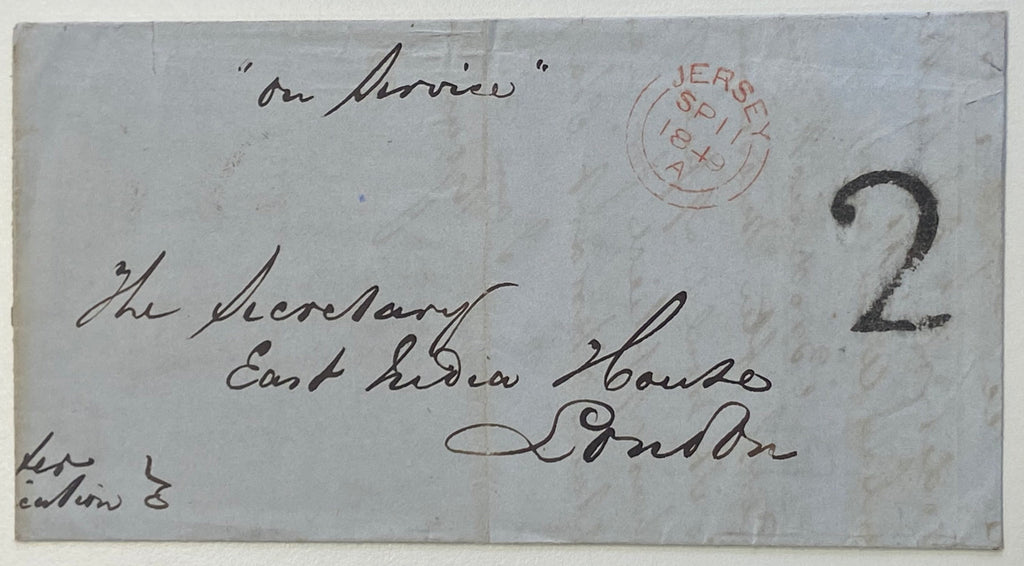 "on Service"
JERSEY
SP 11
1849
A
2
The Secretary
East India House
London